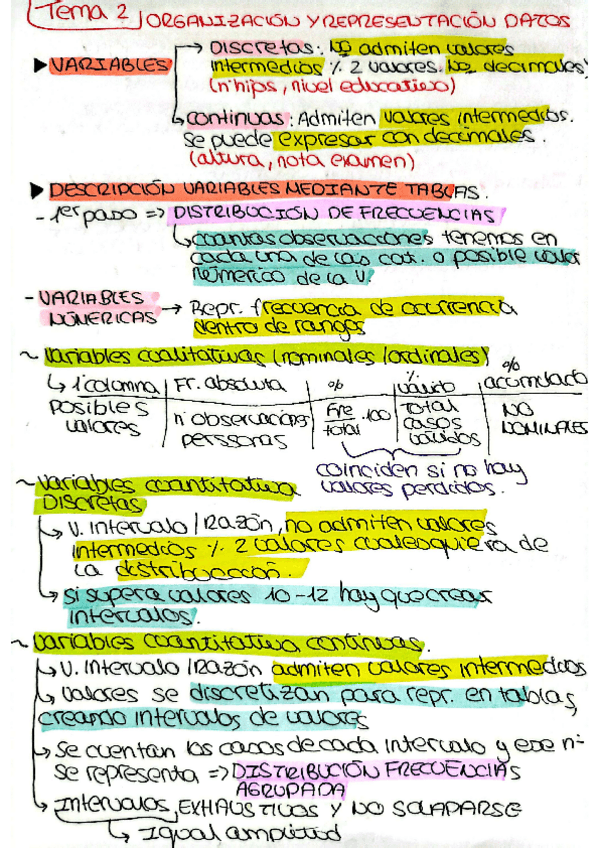 Tema 2 ORGANIZACIÓN Y REPRESENTACIÓN DATOS
▶ VARIABLES → Discretas: NO admiten valores
intermedios % 2 valores. No decimales
(nº hijos, nivel educativo)
↳ continuas: Admiten valores intermedios.
Se puede expresar con decimales.
(altura, nota examen)
▶ DESCRIPCIÓN VARIABLES MEDIANTE TABLAS.
- 1er paso => DISTRIBUCIÓN DE FRECUENCIAS
↳ cuantas observaciones tenemos en
cada una de las cat. o posible valor
númerico de la V.
- VARIABLES NÚMERICAS → Repr. frecuencia de ocurrencia
dentro de rangos
~ Variables cualitativas (nominales/ordinales)
↳ 1ªcolumna | Fr. absoluta | % | % válido | % acumulado
posibles valores | nº observaciones perssonas | Fre/total · 100 | TOTAL casos válidos | NO NOMINALES
coinciden si no hay
valores perdidos.
~ Variables cuantitativa
DISCRETAS
↳ V. Intervalo / Razón, no admiten valores
intermedios % 2 valores cualesquiera de
la distribución.
↳ si supera valores 10-12 hay que crear
intervalos.
~ Variables cuantitativa continuas.
↳ V. Intervalo / Razón admiten valores intermedios
↳ valores se discretizan para repr. en tablas,
creando intervalos de valores
↳ Se cuentan los casos de cada intervalo y ese nº
se representa => DISTRIBUCIÓN FRECUENCIAS
AGRUPADA
↳ Intervalos EXHAUSTIVOS Y NO SOLAPARSE
↳ Igual amplitud